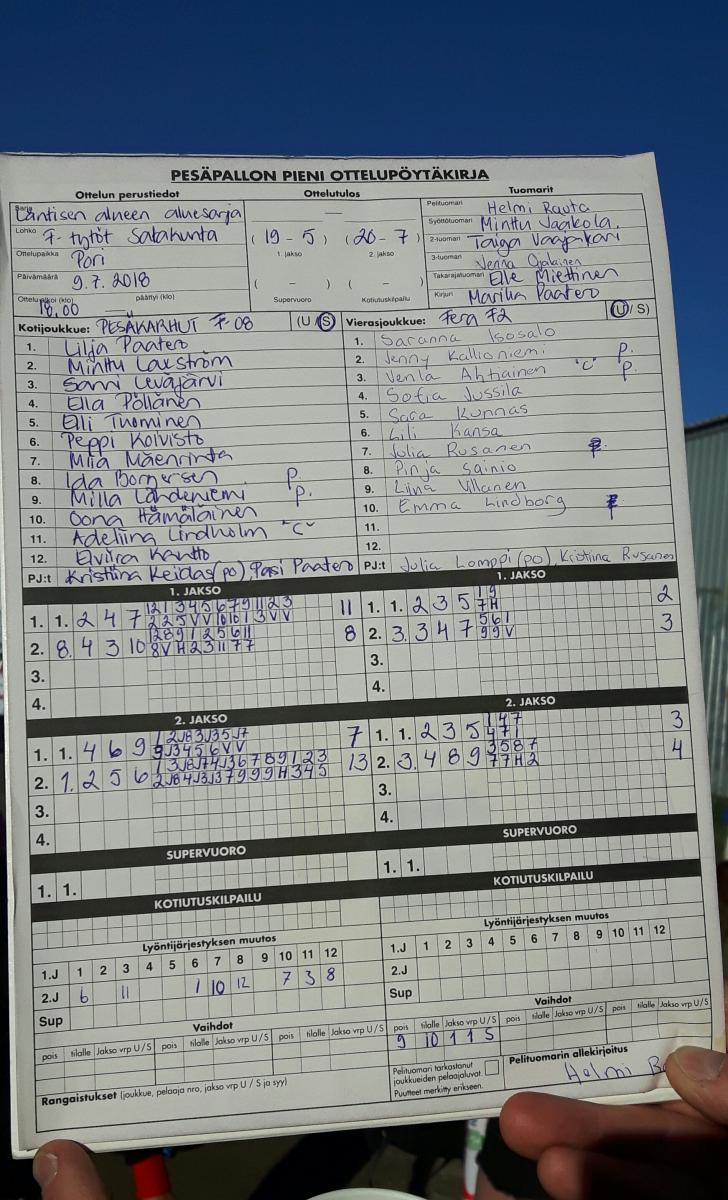 PESÄPALLON PIENI OTTELUPÖYTÄKIRJA
Ottelun perustiedot Ottelutulos Tuomarit
Sarja Läntisen alueen aluesarja
Lohko F-tytöt Satakunta
Ottelupaikka Pori
Päivämäärä 9.7.2018
Ottelu alkoi (klo) 18.00 päättyi (klo)
(19 - 5) (20 - 7)
1. jakso 2. jakso
( - ) ( - )
Supervuoro Kotiutuskilpailu
Pelituomari Helmi Rauta
Syöttötuomari Minttu Jaakola
2-tuomari Taiga Vaapikari
3-tuomari Jenna Ojalainen
Takarajatuomari Elle Miettinen
Kirjuri Marika Paatero
Kotijoukkue: PESÄKARHUT F 08 (U / S)
1. Lilja Paatero
2. Minttu Laxström
3. Sanni Leväjärvi
4. Ella Pöllänen
5. Elli Tuominen
6. Peppi Koivisto
7. Miia Mäenrinta
8. Ida Borgersen p.
9. Milla Lähdeniemi p.
10. Oona Hämäläinen
11. Adeliina Lindholm "C"
12. Elviira Kantto
PJ:t Kristiina Keidas (po), Pasi Paatero
Vierasjoukkue: Fera F2 (U / S)
1. Saranna Isosalo
2. Jenny Kallioniemi p.
3. Venla Ahtiainen "C" p.
4. Sofia Jussila
5. Saga Kunnas
6. Lili Kansa
7. Julia Rusanen
8. Pinja Sainio
9. Liina Villanen
10. Emma Lindborg
11.
12.
PJ:t Julia Lomppi (po), Kristiina Rusanen
1. JAKSO
1. 1. 2 4 7 11
2. 8. 4 3 10 8
3.
4.
1. JAKSO
1. 1. 2 3 5 2
2. 3. 3 4 7 3
3.
4.
2. JAKSO
1. 1. 4 6 9 7
2. 1. 2 5 6 13
3.
4.
2. JAKSO
1. 1. 2 3 5 3
2. 3. 4 8 9 4
3.
4.
SUPERVUORO
1. 1.
SUPERVUORO
1. 1.
KOTIUTUSKILPAILU
KOTIUTUSKILPAILU
Lyöntijärjestyksen muutos
1.J 1 2 3 4 5 6 7 8 9 10 11 12
2.J 6 11 1 10 12 7 3 8
Sup
Lyöntijärjestyksen muutos
1.J 1 2 3 4 5 6 7 8 9 10 11 12
2.J
Sup
Vaihdot
pois tilalle Jakso vrp U/S pois tilalle Jakso vrp U/S pois tilalle Jakso vrp U/S
Vaihdot
pois tilalle Jakso vrp U/S pois tilalle Jakso vrp U/S pois tilalle Jakso vrp U/S
9 10 1 1 S
Rangaistukset (joukkue, pelaaja nro, jakso vrp U / S ja syy)
Pelituomari tarkastanut
joukkueiden pelaajaluvat.
Puutteet merkitty erikseen.
Pelituomarin allekirjoitus
Helmi